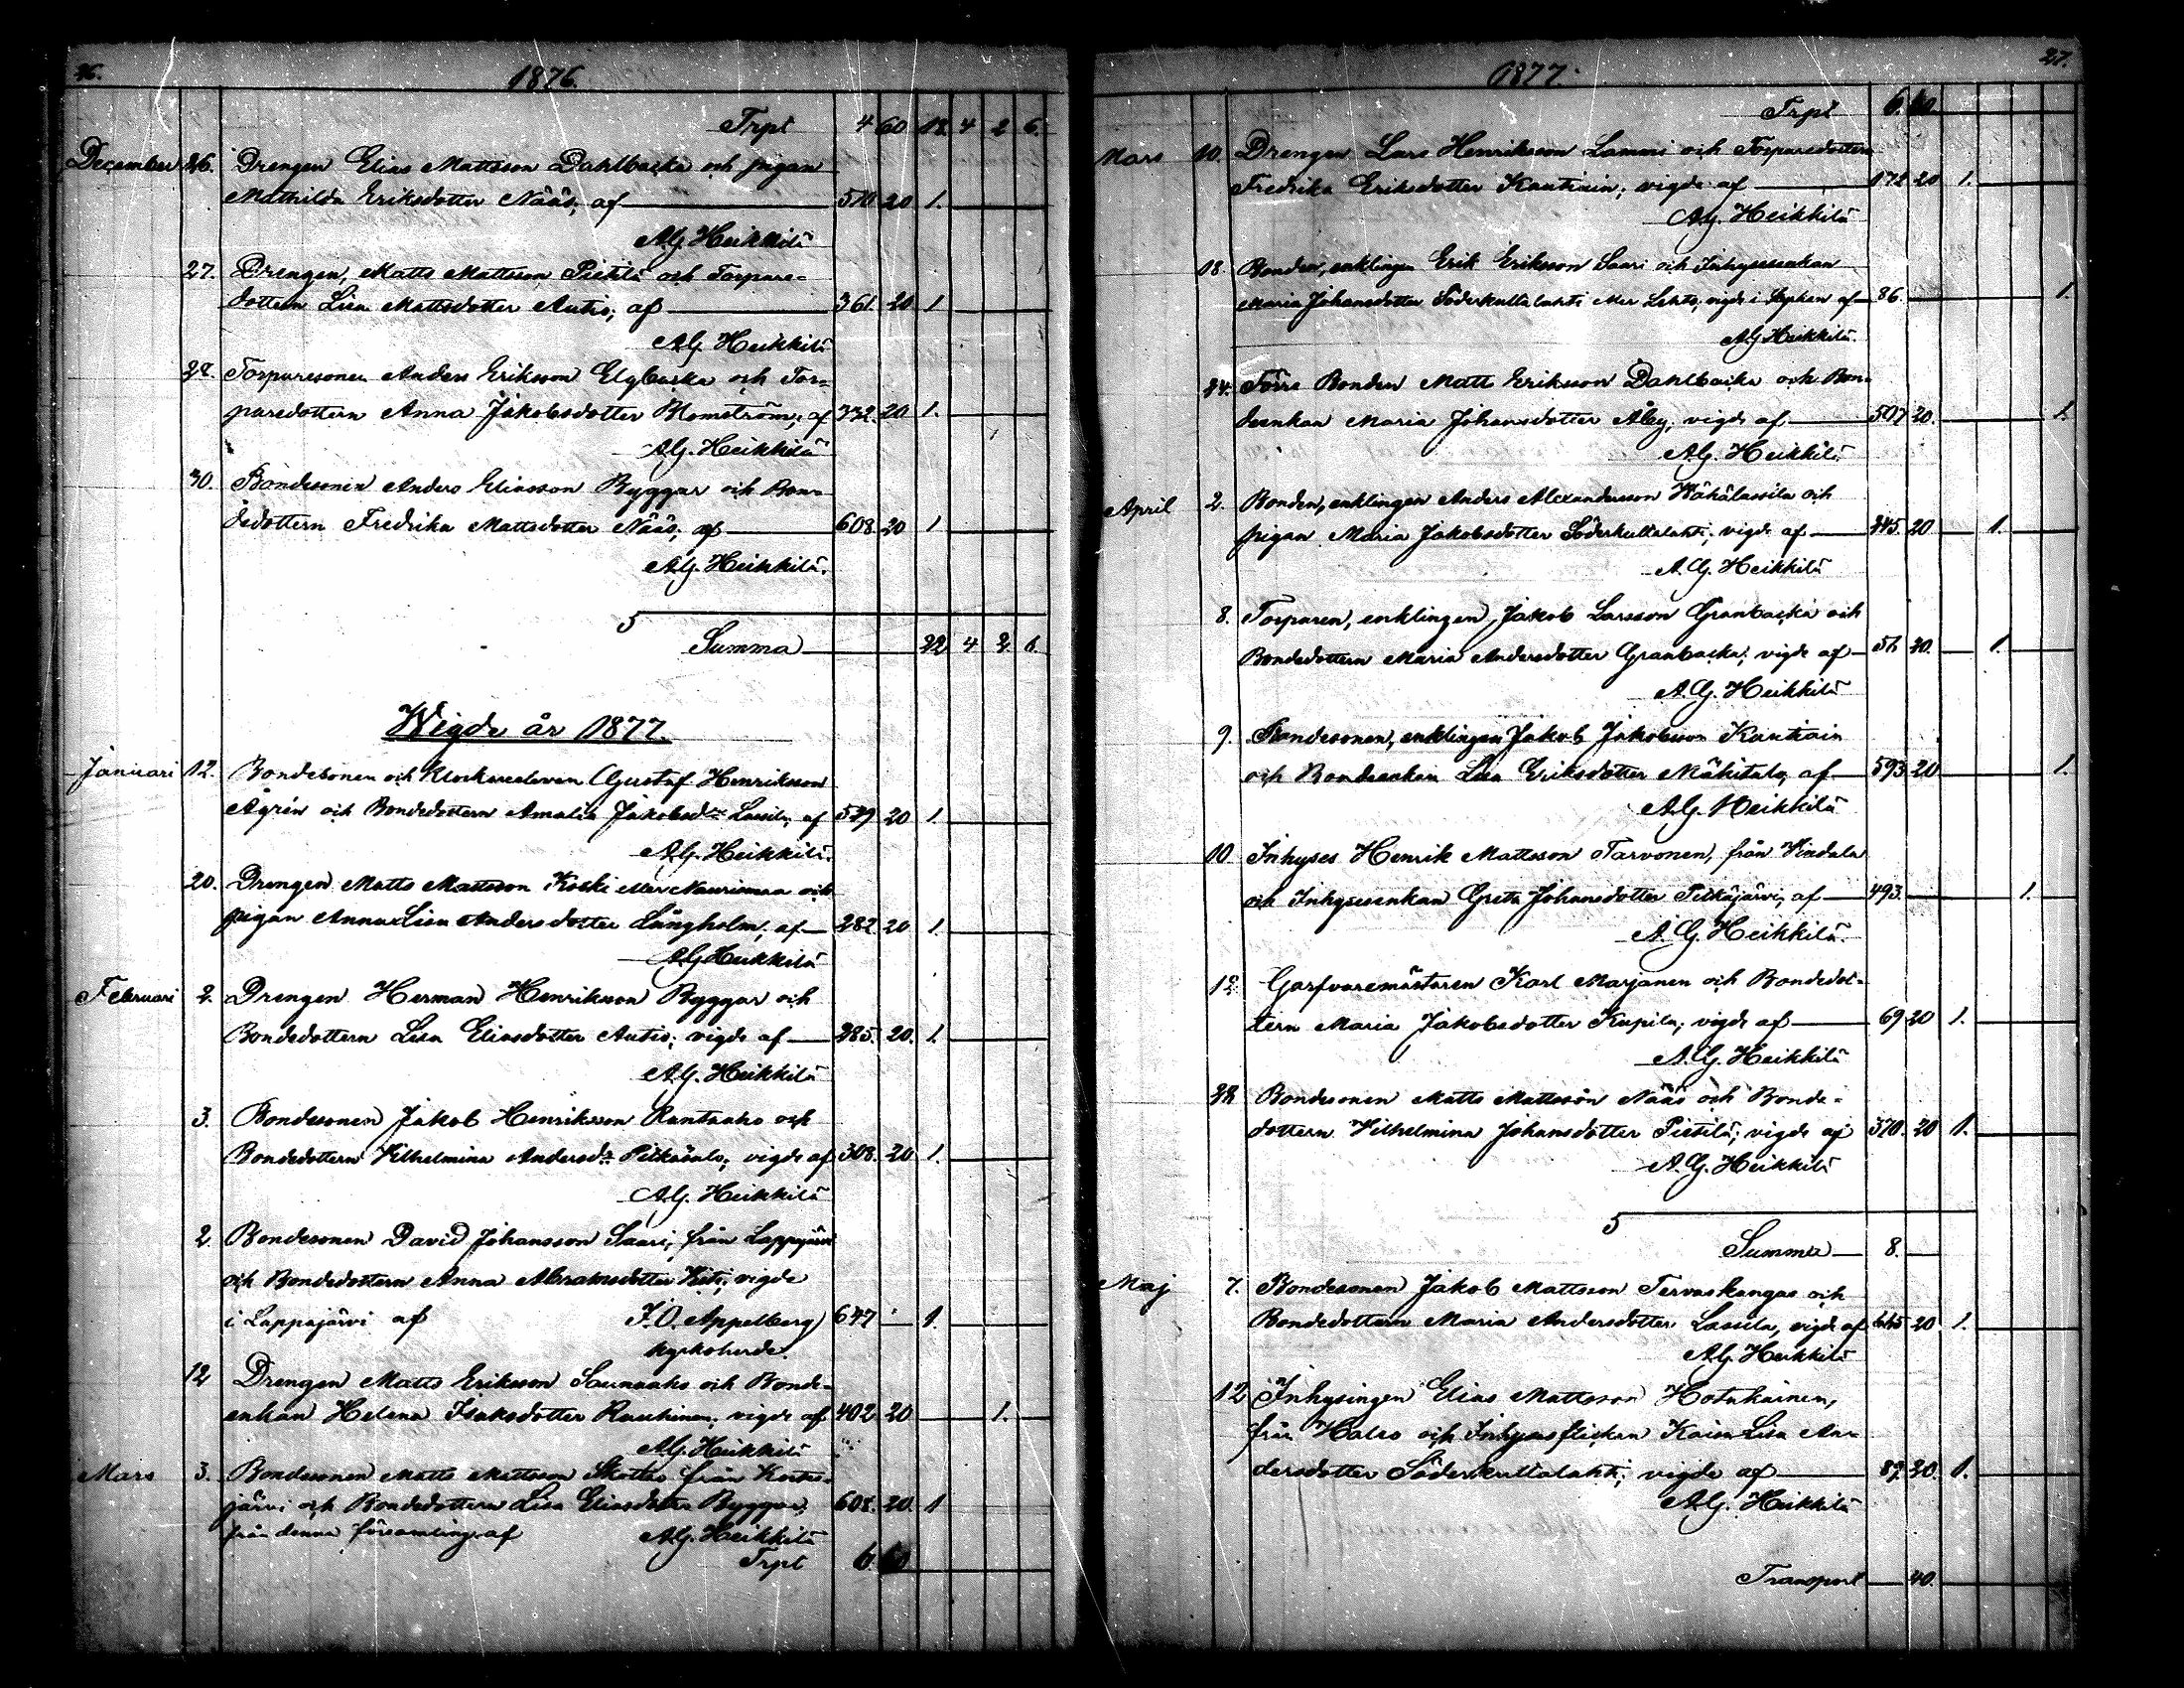 26.
1876.
Trpt 4 60 18. 4 2 6.
December 26. Drengen Elias Mattsson Dahlbacka och pigan
Mathilda Eriksdotter Nääs, af 510 20 1.
A.G. Heikkilä
27. Drengen, Matts Mattsson Pietilä och Torpare-
dottern Lisa Mattsdotter Autio; af 361. 20. 1
A.G. Heikkilä
28. Torparesonen Anders Eriksson Elgbacka och Tor-
paredottern Anna Jakobsdotter Blomström; af 332. 20 1.
A.G. Heikkilä
30. Bondesonen Anders Eliasson Byggar och Bon-
dedottern Fredrika Mattsdotter Nääs; af 608. 20 1
A.G. Heikkilä.
5
Summa 22 4 2. 6.
Wigde år 1877.
Januari 12. Bondesonen och Klockareeleven Gustaf Henriksson
Ågrén och Bondedottern Amalia Jakobsdr Lassila; af 579 20 1.
A.G. Heikkilä.
20. Drengen Matts Mattsson Koski eller Naurismaa och
pigan Anna Lisa Andersdotter Långholm; af 282 20 1.
A.G. Heikkilä
Februari 2. Drengen Herman Henriksson Byggar och
Bondedottern Lisa Eliasdotter Autio; vigde af 285. 20. 1.
A.G. Heikkilä
3. Bondesonen Jakob Henriksson Rantaaho och
Bondedottern Vilhelmina Andersdr Pitkäsalo; vigde af 308. 20 1.
A.G. Heikkilä
2 Bondesonen David Johansson Saari, från Lappajärvi
och Bondedottern Anna Abramsdotter vigde
i Lappajärvi af J.O. Appelberg 647 1.
kyrkoherde.
12 Drengen Matts Eriksson Saunaaho och Bonde-
enkan Helena Isaksdotter Rauhinen; vigde af 402 20 1.
A.G. Heikkilä
Mars 3. Bondesonen Matts Mattsson från Korte-
järvi och Bondedottern Lisa Eliasdotter Byggar, 608. 20. 1
från denna församling af A.G. Heikkilä
Trpt 6. 60
27.
1877.
Trpt 6. 60.
Mars 10. Drengen Lars Henriksson Lammi och Torparedottern
Fredrika Eriksdotter Kautiain; vigde af 172 20 1.
A.G. Heikkilä
18. Bonden, enklingen Erik Eriksson Saari och Inhysesenkan
Maria Johansdotter Söderkultalahti eller Lehto; vigde i af 86. 1.
A.G. Heikkilä.
24. Förre Bonden Matts Eriksson Dahlbacka och Bon-
deenkan Maria Johansdotter Åby, vigde af 507 20. 1.
A.G. Heikkilä
April 2. Bonden, enklingen Anders Alexandersson Wähälassila och
pigan Maria Jakobsdotter Söderkultalahti; vigde af 345. 20 1.
A.G. Heikkilä
8. Torparen, enklingen Jakob Larsson Granbacka och
Bondedottern Maria Andersdotter Granbacka; vigde af 51 20. 1.
A.G. Heikkilä
9. Bondesonen, enklingen Jakob Jakobsson Kautiain
och Bondeenkan Lisa Eriksdotter Mäkitalo; af 593 20 1.
A.G. Heikkilä
10 Inhyses Henrik Mattsson Tarvonen, från Vindala
och Inhysesenkan Greta Johansdotter Pitkäjärvi, af 493. 1.
A.G. Heikkilä.
12. Garfvaremästaren Karl Marjanen och Bondedot-
tern Maria Jakobsdotter Kupila; vigde af 69 20 1.
A.G. Heikkilä
22 Bondesonen Matts Mattsson Nääs och Bonde-
dottern Vilhelmina Johansdotter Pietilä; vigde af 370. 20 1.
A.G. Heikkilä
5
Summa 8.
Maj 7. Bondesonen Jakob Mattsson Tervaskangas och
Bondedottern Maria Andersdotter Lassila, vigde af 20 1.
A.G. Heikkilä
12 Inhysingen Elias Mattsson Hotakainen,
från Halso och Inhysesflickan Kaisa Lisa An-
dersdotter Söderkultalahti; vigde af 87. 20. 1.
A.G. Heikkilä
Transport 40.